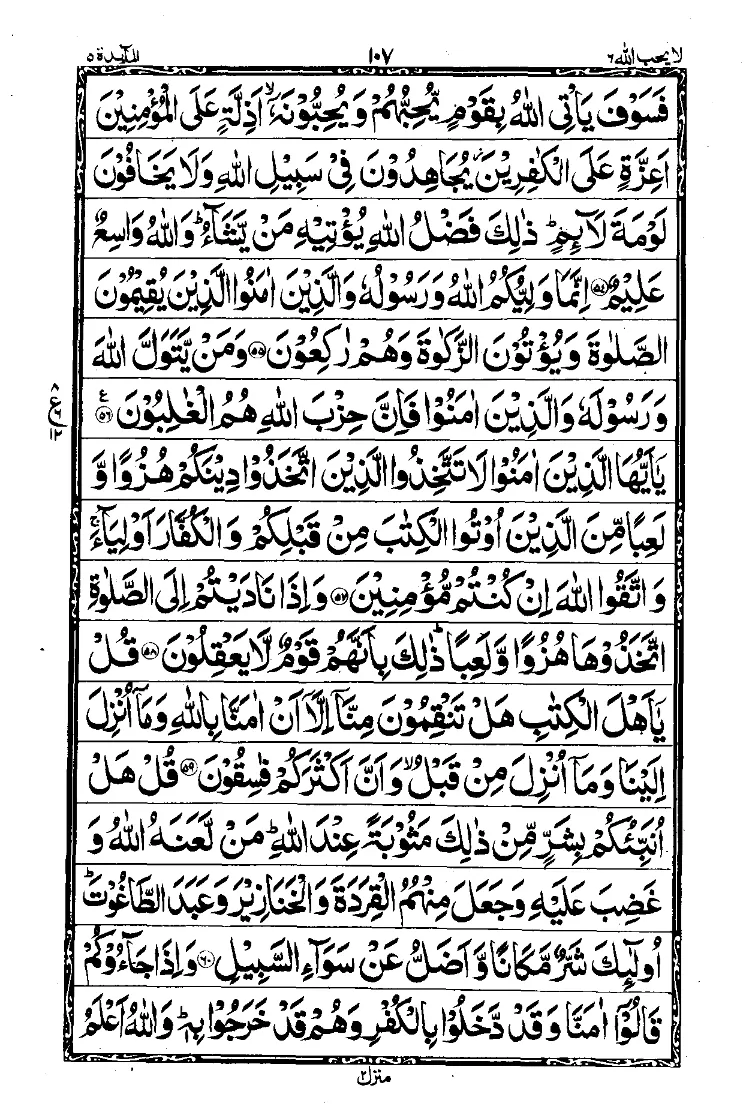 لا یحب الله ٦ ١٠٧ المآئدة ٥
فَسَوْفَ يَاْتِى اللّٰهُ بِقَوْمٍ يُّحِبُّهُمْ وَ يُحِبُّوْنَهٗۤ ۙ اَذِلَّةٍ عَلَى الْمُؤْمِنِيْنَ
اَعِزَّةٍ عَلَى الْكٰفِرِيْنَ ۫ يُجَاهِدُوْنَ فِىْ سَبِيْلِ اللّٰهِ وَ لَا يَخَافُوْنَ
لَوْمَةَ لَآئِمٍ ؕ ذٰلِكَ فَضْلُ اللّٰهِ يُؤْتِيْهِ مَنْ يَّشَآءُ ؕ وَ اللّٰهُ وَاسِعٌ
عَلِيْمٌ ﴿۵۴﴾ اِنَّمَا وَلِيُّكُمُ اللّٰهُ وَ رَسُوْلُهٗ وَ الَّذِيْنَ اٰمَنُوا الَّذِيْنَ يُقِيْمُوْنَ
الصَّلٰوةَ وَ يُؤْتُوْنَ الزَّكٰوةَ وَ هُمْ رٰكِعُوْنَ ﴿۵۵﴾ وَ مَنْ يَّتَوَلَّ اللّٰهَ
وَ رَسُوْلَهٗ وَ الَّذِيْنَ اٰمَنُوْا فَاِنَّ حِزْبَ اللّٰهِ هُمُ الْغٰلِبُوْنَ ﴿۵۶﴾ ع
يٰۤاَيُّهَا الَّذِيْنَ اٰمَنُوْا لَا تَتَّخِذُوا الَّذِيْنَ اتَّخَذُوْا دِيْنَكُمْ هُزُوًا وَّ
لَعِبًا مِّنَ الَّذِيْنَ اُوْتُوا الْكِتٰبَ مِنْ قَبْلِكُمْ وَ الْكُفَّارَ اَوْلِيَآءَ ۚ
وَ اتَّقُوا اللّٰهَ اِنْ كُنْتُمْ مُّؤْمِنِيْنَ ﴿۵۷﴾ وَ اِذَا نَادَيْتُمْ اِلَى الصَّلٰوةِ
اتَّخَذُوْهَا هُزُوًا وَّ لَعِبًا ؕ ذٰلِكَ بِاَنَّهُمْ قَوْمٌ لَّا يَعْقِلُوْنَ ﴿۵۸﴾ قُلْ
يٰۤاَهْلَ الْكِتٰبِ هَلْ تَنْقِمُوْنَ مِنَّاۤ اِلَّاۤ اَنْ اٰمَنَّا بِاللّٰهِ وَ مَاۤ اُنْزِلَ
اِلَيْنَا وَ مَاۤ اُنْزِلَ مِنْ قَبْلُ ۙ وَ اَنَّ اَكْثَرَكُمْ فٰسِقُوْنَ ﴿۵۹﴾ قُلْ هَلْ
اُنَبِّئُكُمْ بِشَرٍّ مِّنْ ذٰلِكَ مَثُوْبَةً عِنْدَ اللّٰهِ ؕ مَنْ لَّعَنَهُ اللّٰهُ وَ
غَضِبَ عَلَيْهِ وَ جَعَلَ مِنْهُمُ الْقِرَدَةَ وَ الْخَنَازِيْرَ وَ عَبَدَ الطَّاغُوْتَ ؕ
اُولٰٓئِكَ شَرٌّ مَّكَانًا وَّ اَضَلُّ عَنْ سَوَآءِ السَّبِيْلِ ﴿۶۰﴾ وَ اِذَا جَآءُوْكُمْ
قَالُوْۤا اٰمَنَّا وَ قَدْ دَّخَلُوْا بِالْكُفْرِ وَ هُمْ قَدْ خَرَجُوْا بِهٖ ؕ وَ اللّٰهُ اَعْلَمُ
منزل ٢